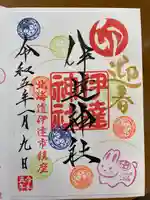 迎春
伊達神社
伊達
神社
北海道伊達市鎮座
令和五年一月九日